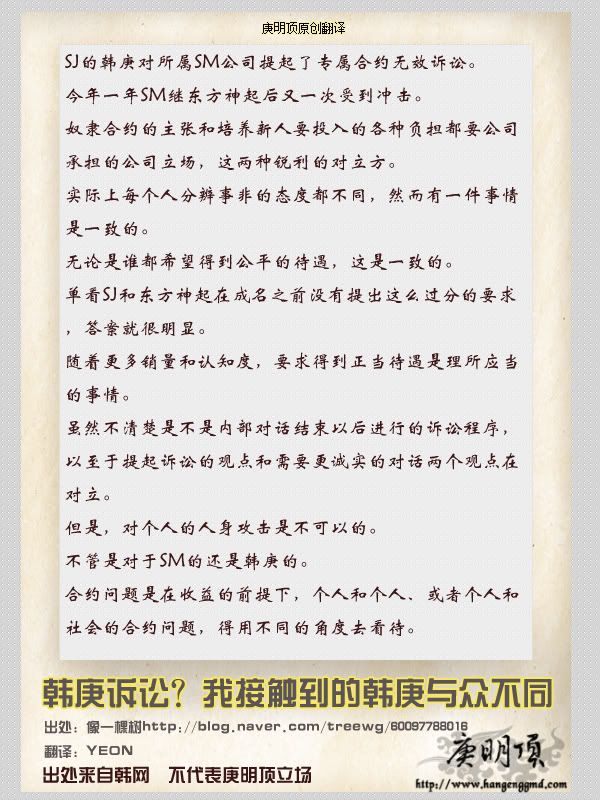 庚明顶原创翻译
SJ的韩庚对所属SM公司提起了专属合约无效诉讼。
今年一年SM继东方神起后又一次受到冲击。
奴隶合约的主张和培养新人要投入的各种负担都要公司
承担的公司立场，这两种锐利的对立方。
实际上每个人分辨事非的态度都不同，然而有一件事情
是一致的。
无论是谁都希望得到公平的待遇，这是一致的。
单看SJ和东方神起在成名之前没有提出这么过分的要求
，答案就很明显。
随着更多销量和认知度，要求得到正当待遇是理所应当
的事情。
虽然不清楚是不是内部对话结束以后进行的诉讼程序，
以至于提起诉讼的观点和需要更诚实的对话两个观点在
对立。
但是，对个人的人身攻击是不可以的。
不管是对于SM的还是韩庚的。
合约问题是在收益的前提下，个人和个人、或者个人和
社会的合约问题，得用不同的角度去看待。
韩庚诉讼？我接触到的韩庚与众不同
出处：像一棵树http://blog.naver.com/treewg/60097788016
翻译：YEON
出处来自韩网 不代表庚明顶立场
庚明頂
http://www.hangenggmd.com